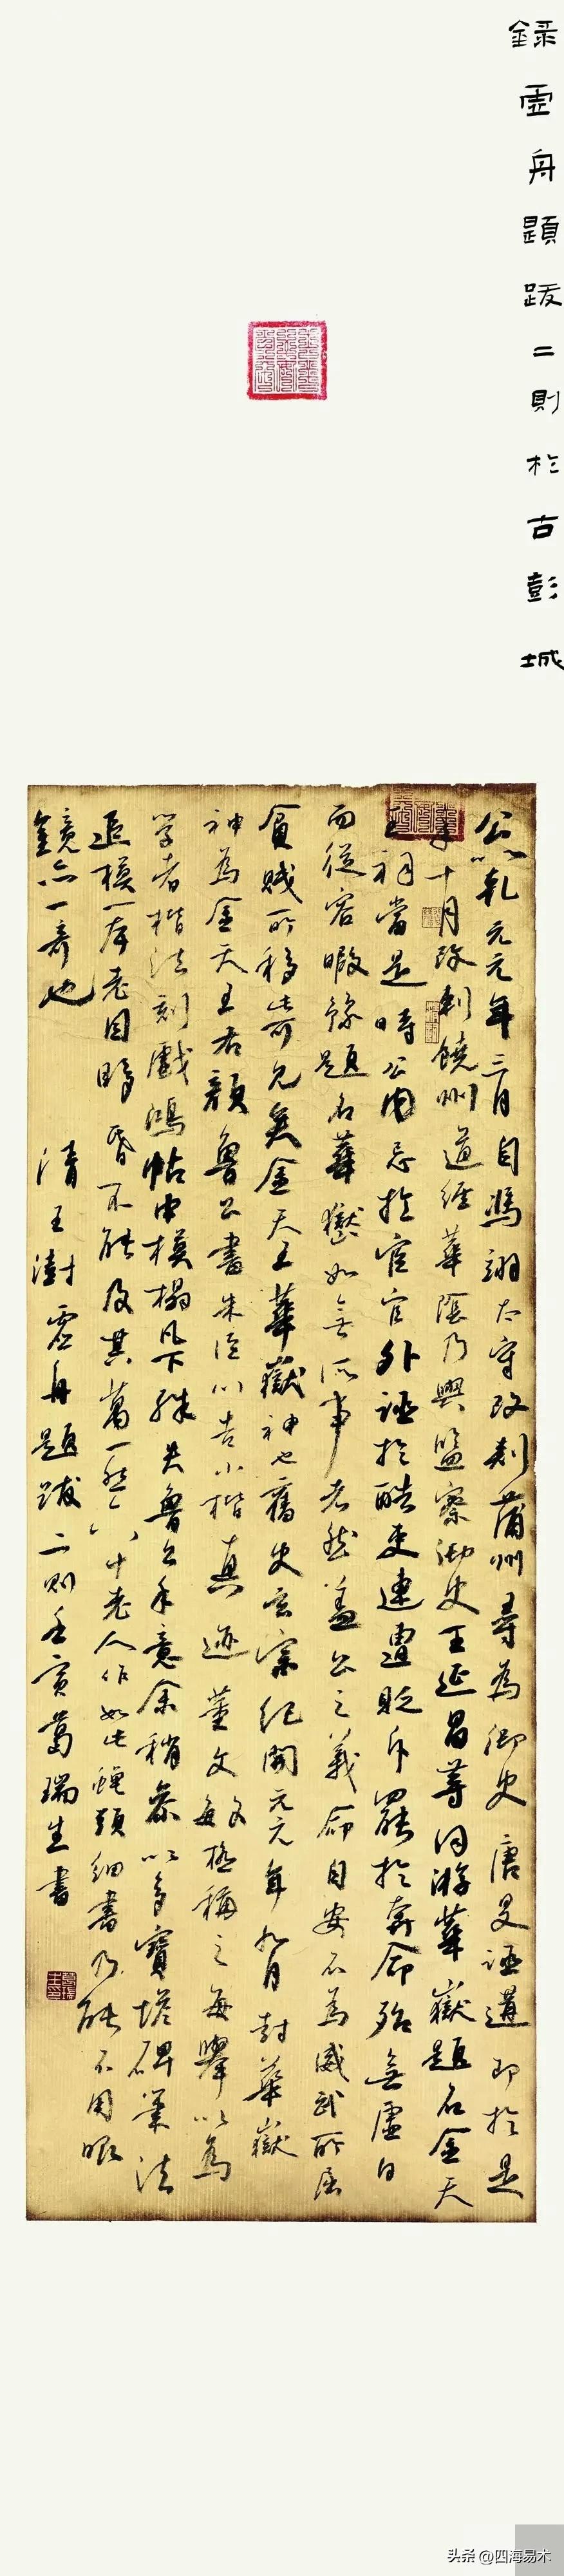 錄虛舟題跋二則於古彭城
公以乾元元年三月自馮翊太守改刺蒲州尋為御史唐旻誣遘即於是
年十月改刺饒州道經華陰乃與監察御史王延昌等同游華嶽題名金天
王祠當是時公內忌於宦官外誣於酷吏連遭貶斥罷於奔命殆無虛日
而從容暇豫題名華嶽如無所事者然蓋公之義命自安不為威武所屈
貧賤所移皆可見矣金天王華嶽神也舊史玄宗紀開元元年九月封華嶽
神為金天王右顏魯公書朱巨川告小楷真迹董文敏極稱之每舉以為
學者楷法刻戲鴻帖中模榻凡下殊失魯公手意余稍參以多寶塔碑筆法
追模一本老目眵昏不能及其萬一然六十老人作如此蠅頭細書乃能不用眼
鏡亦一奇也 清王澍虛舟題跋二則壬寅葛瑞生書
头条 @四海易木